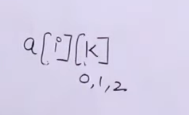 a[i][k]
0,1,2